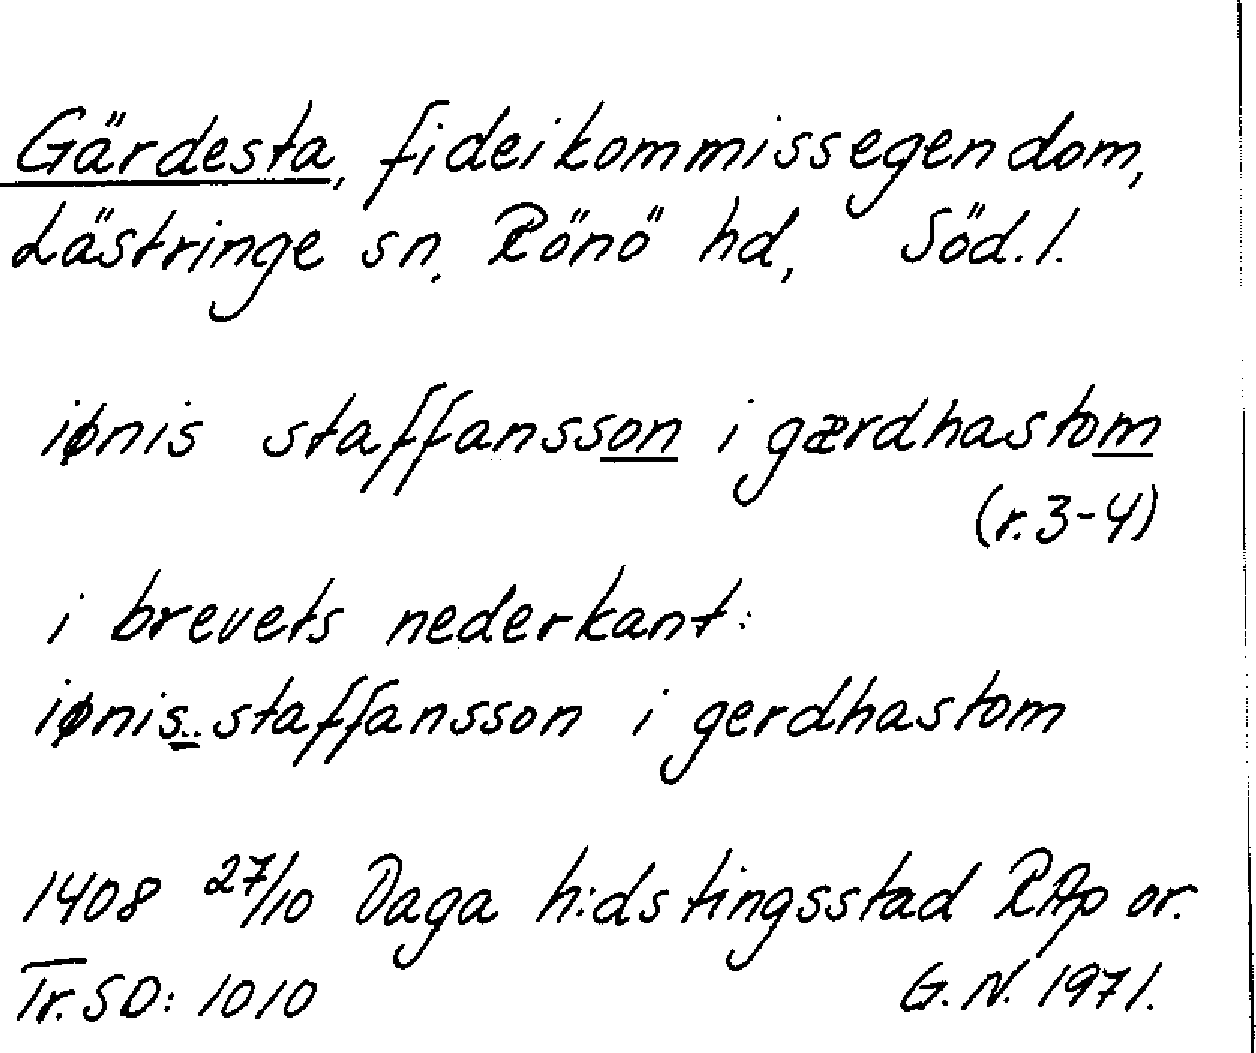 Gärdesta, fideikommissegendom,
Lästringe sn, Rönö hd, Söd. l.
iønis staffansson i gærdhastom
(r. 3-4)
i brevets nederkant:
iønis.. staffansson i gerdhastom
1408 27/10 Daga h:ds tingsstad RAp or.
Tr. SD: 1010 G. N. 1971.